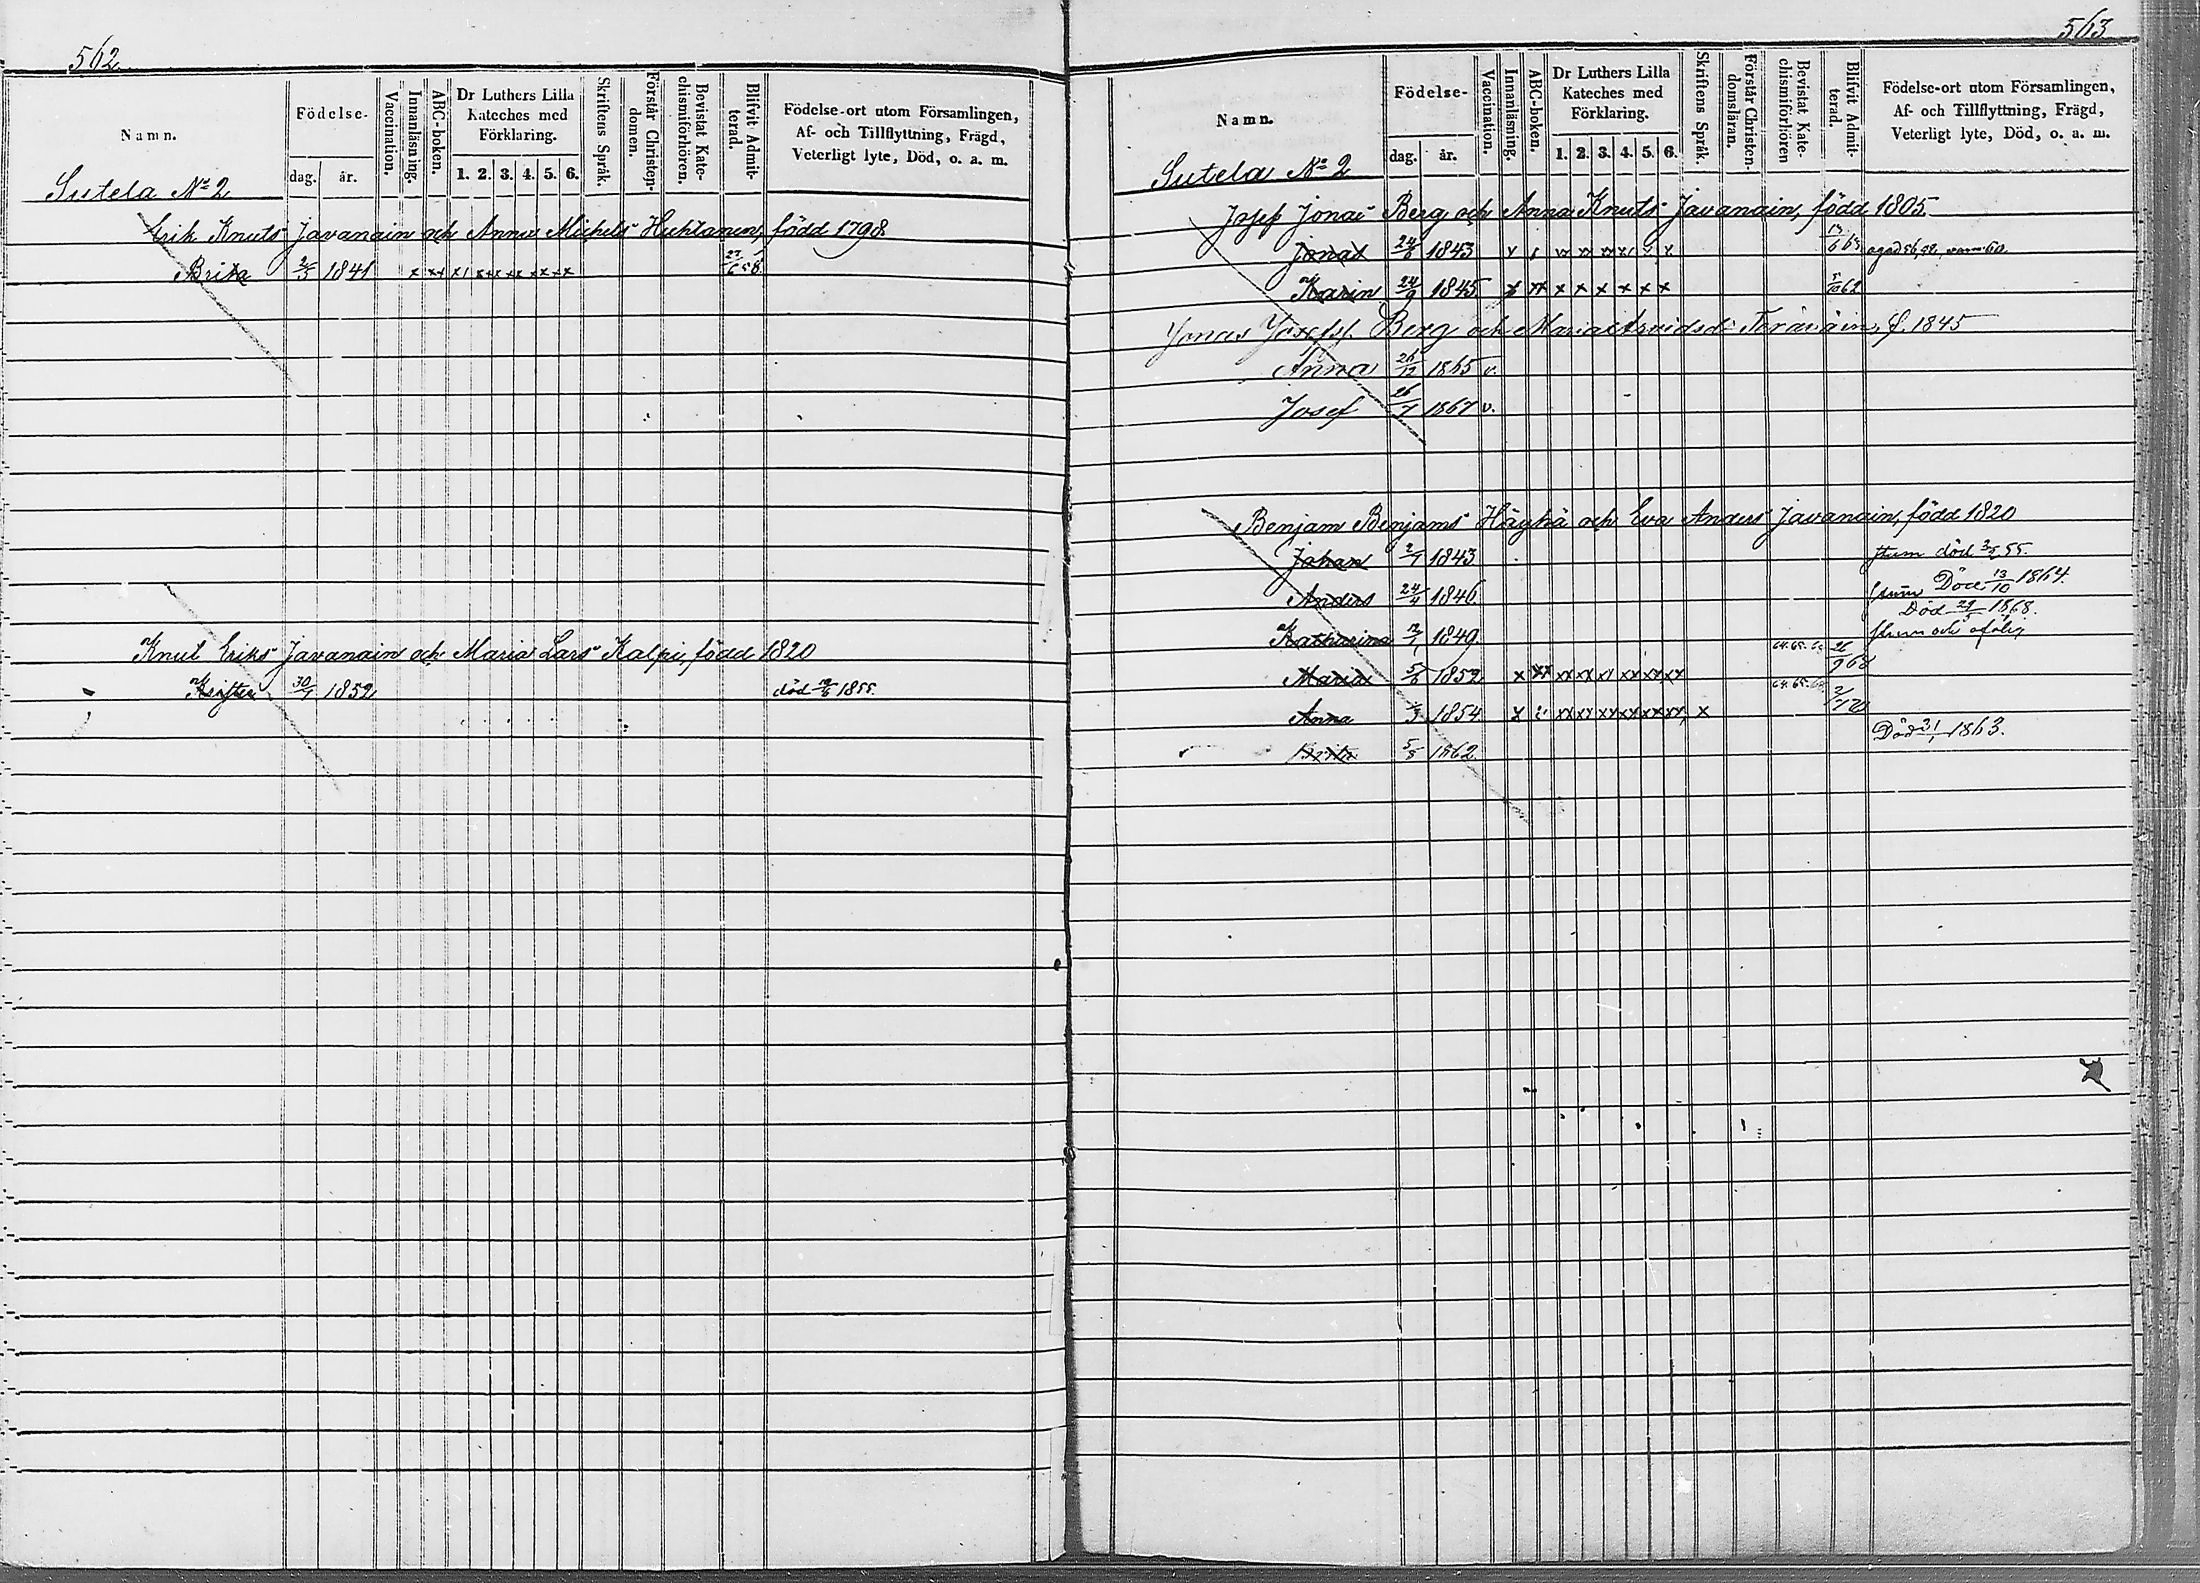 562
Namn.
Födelse-
dag. år.
Vaccination.
Innanläsning.
ABC-boken.
Dr Luthers Lilla
Kateches med
Förklaring.
1. 2. 3. 4. 5. 6.
Skriftens Språk.
Förstår Christen-
domen.
Bevistat Kate-
chismiförhören.
Blifvit Admit-
terad.
Födelse-ort utom Församlingen,
Af- och Tillflyttning, Frägd,
Veterligt lyte, Död, o. a. m.
Sutela No 2
Erik Knuts Javanain och Anna Michels Huhtanen, född 1798
Brita 2/5 1841 x xx x x xx xx xx x
Knut Eriks Javanain och Maria Lars Kalpi, född 1820
30/7 1852 död 1855.
563
Namn.
Födelse-
dag. år.
Vaccination.
Innanläsning.
ABC-boken.
Dr Luthers Lilla
Kateches med
Förklaring.
1. 2. 3. 4. 5. 6.
Skriftens Språk.
Förstår Christen-
domsläran.
Bevistat Kate-
chismiförhören
Blifvit Admit-
terad.
Födelse-ort utom Församlingen,
Af- och Tillflyttning, Frägd,
Veterligt lyte, Död, o. a. m.
Sutela No 2
Josep Jonas Berg och Anna Knuts Javanain, född 1805.
Jonas 24/6 1843
Karin 24/9 1845 x xx x x x x x x 5/10 62
Jonas Josefss. Berg och Maria Arvidsd. f. 1845
Anna 26/12 1865 v.
Josef 26/7 1867 v.
Benjam Benjams Häyhä och Eva Anders Javanain, född 1820
Johan 2/7 1843 stum död 3/2 55.
Anders 24/4 1846 stum Död 13/10 1864.
Katharina 1849 Död 1868.
stum och ofärig
Maria 5/6 1852 x xx xx xx xx xx xx xx 64. 65. 26/9 68
Anna 1854 x xx xx xx xx xx xx x 64. 65. 2/7 70
Brita 5/8 1862 Död 31/1 1863.